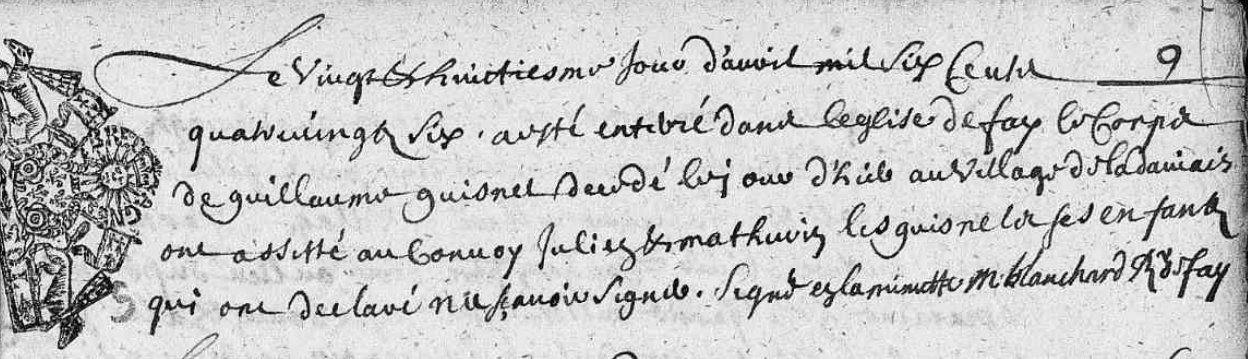 Le vingt & huictiesme jour d'avril mil six cents 9
quatre vingt six. a esté enterré dans l'eglise de fay le Corps
de guillaume guisnel decedé le jour d'hier au village de la daviais
ont assisté au Convoy Julien & mathurin les guisnels ses enfants
qui ont declaré ne sçavoir signer. Signé en la minutte M. blanchard Rr de fay